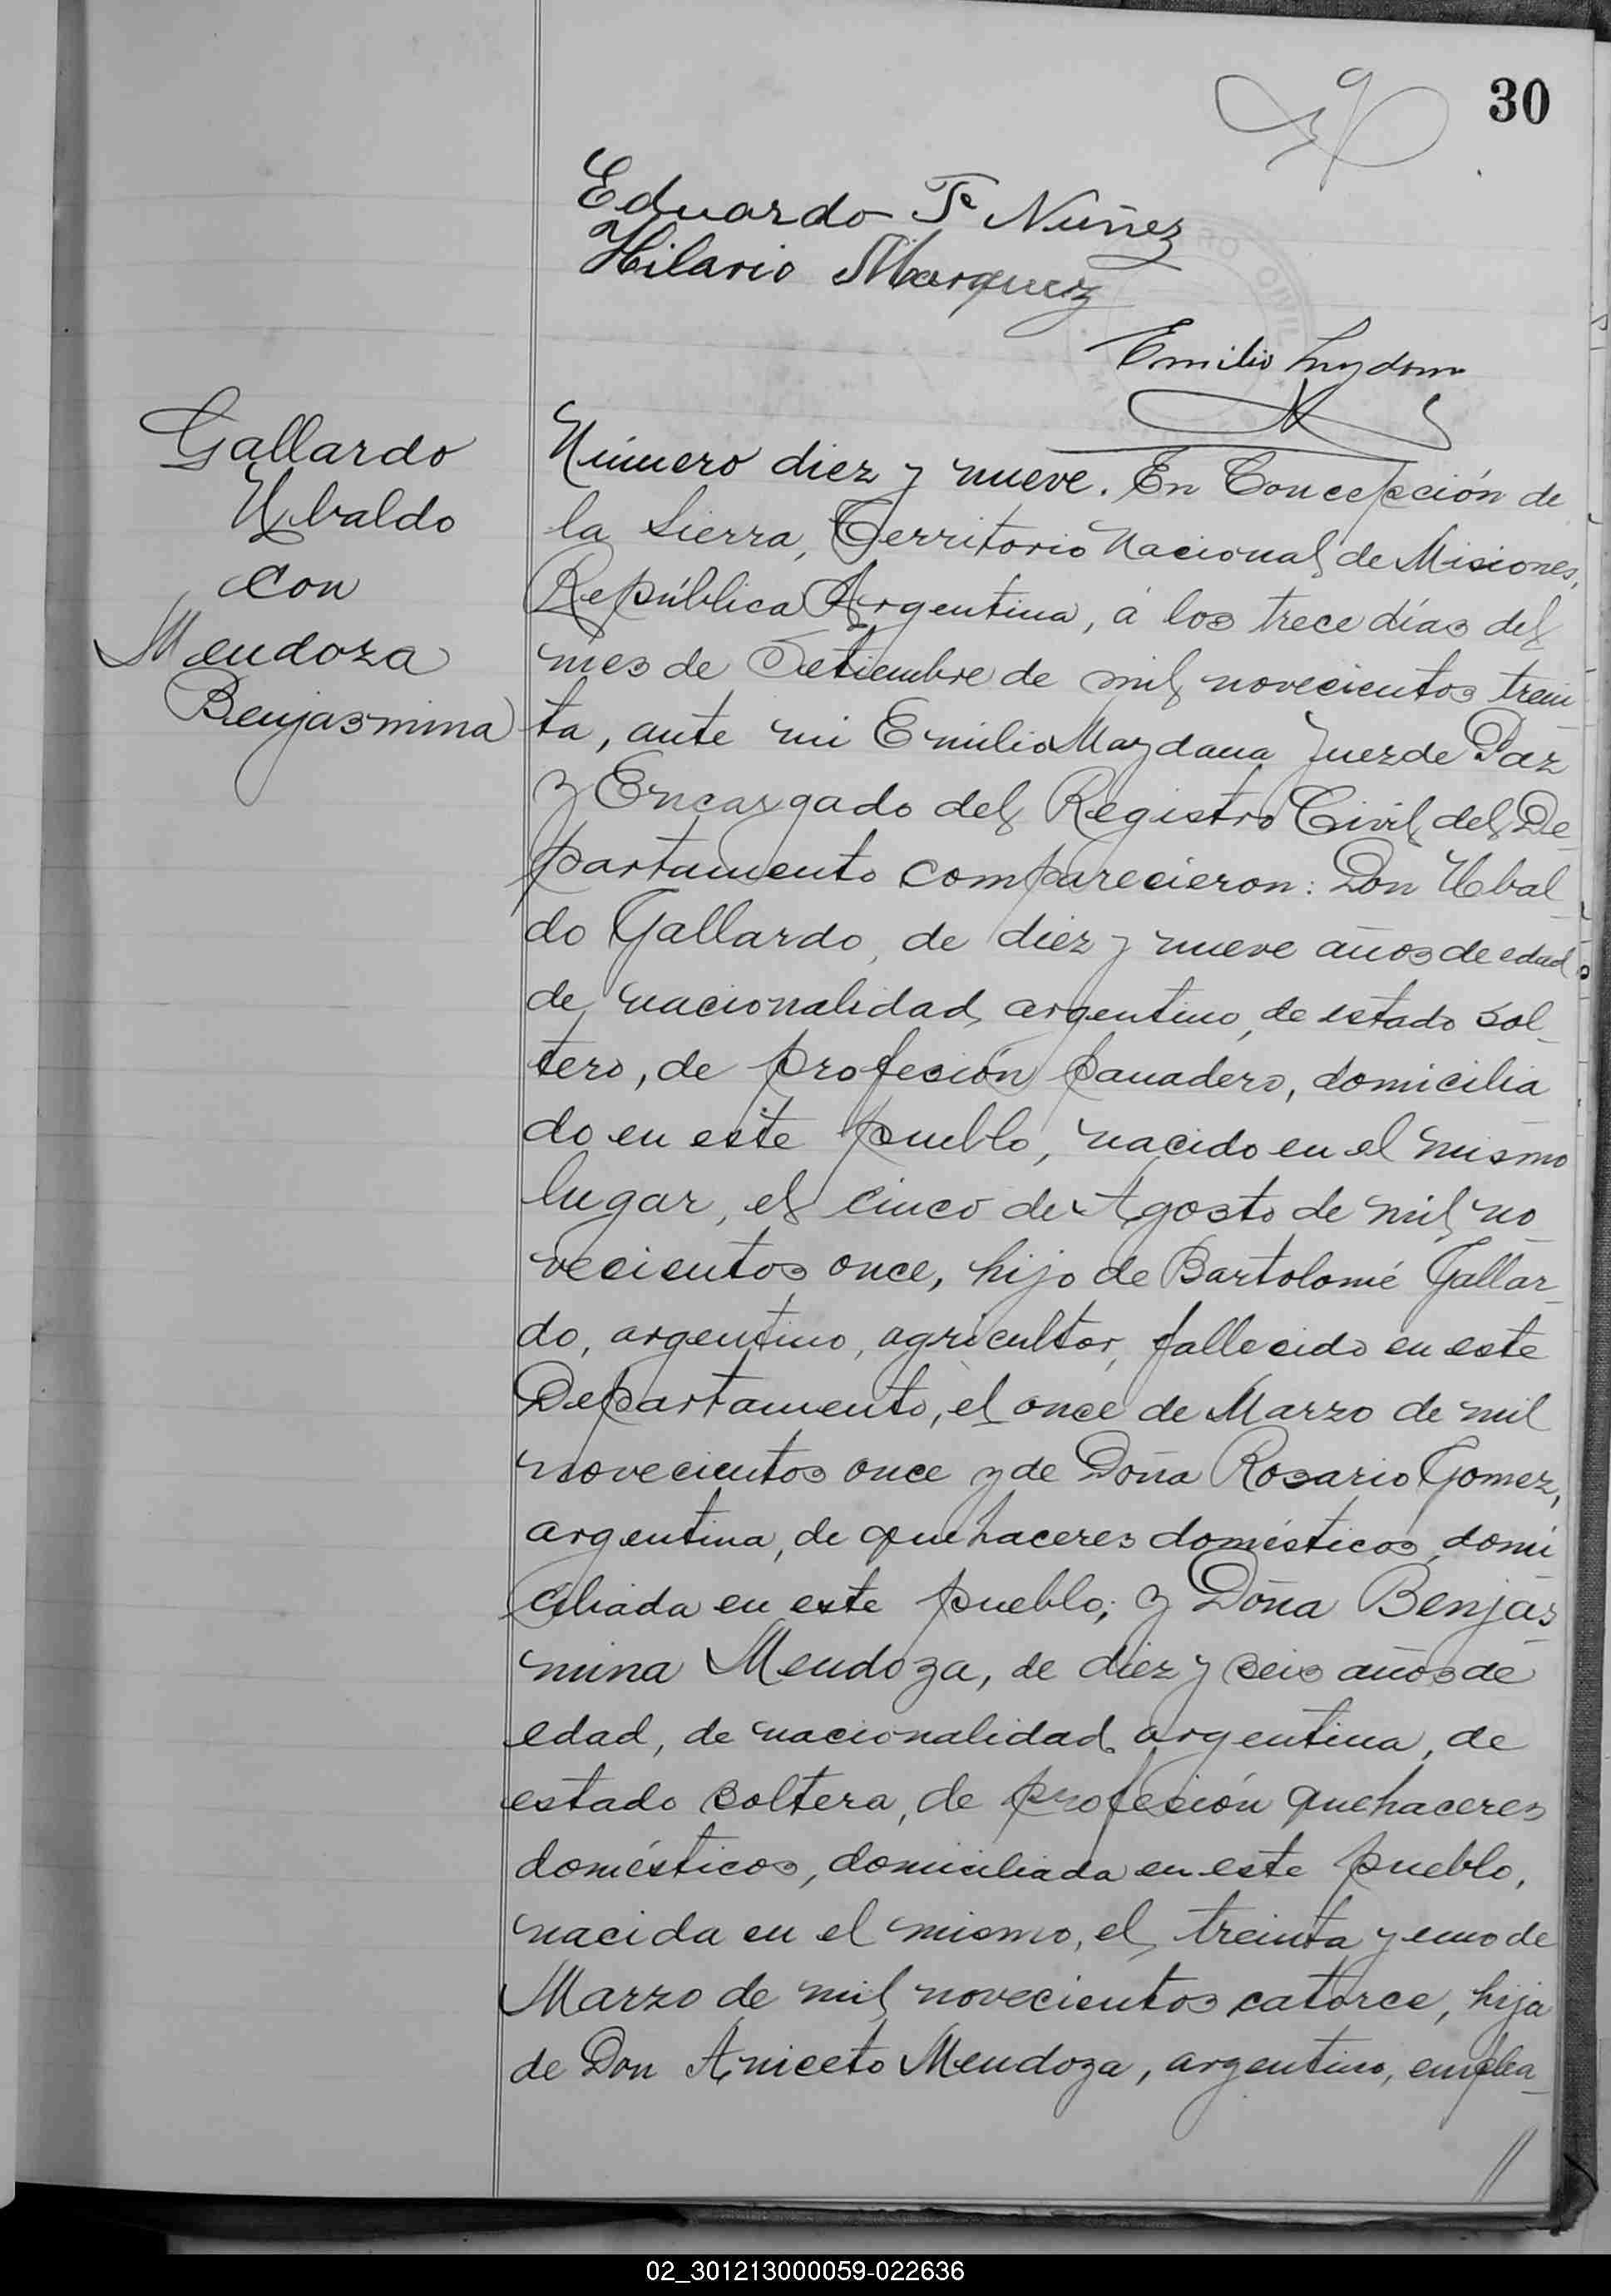 30
Eduardo Te Nuñez
Hilario Marquez
Emilio
Gallardo
Ubaldo
con
Mendoza
Benjasmina
Número diez y nueve. En Concepción de
la Sierra, Territorio Nacional de Misiones,
República Argentina, á los trece días del
mes de Setiembre de mil novecientos trein
ta, ante mi Emilio Maydana Juez de Paz
y Encargado del Registro Civil del De_
partamento comparecieron: Don Ubal_
do Gallardo, de diez y nueve años de edad
de nacionalidad argentino, de estado sol_
tero, de profesión panadero, domicilia
do en este pueblo, nacido en el mismo
lugar, el cinco de Agosto de mil no_
vecientos once, hijo de Bartolomé Gallar_
do, argentino, agricultor, fallecido en este
Departamento, el once de Marzo de mil
novecientos once y de Doña Rosario Gomez,
argentina, de quehaceres domésticos, domi
ciliada en este pueblo; y Doña Benjas_
mina Mendoza, de diez y seis años de
edad, de nacionalidad argentina, de
estado soltera, de profesión quehaceres
domésticos, domiciliada en este pueblo,
nacida en el mismo, el treinta y uno de
Marzo de mil novecientos catorce, hija
de Don Aniceto Mendoza, argentino, emplea_
//
02_301213000059-022636